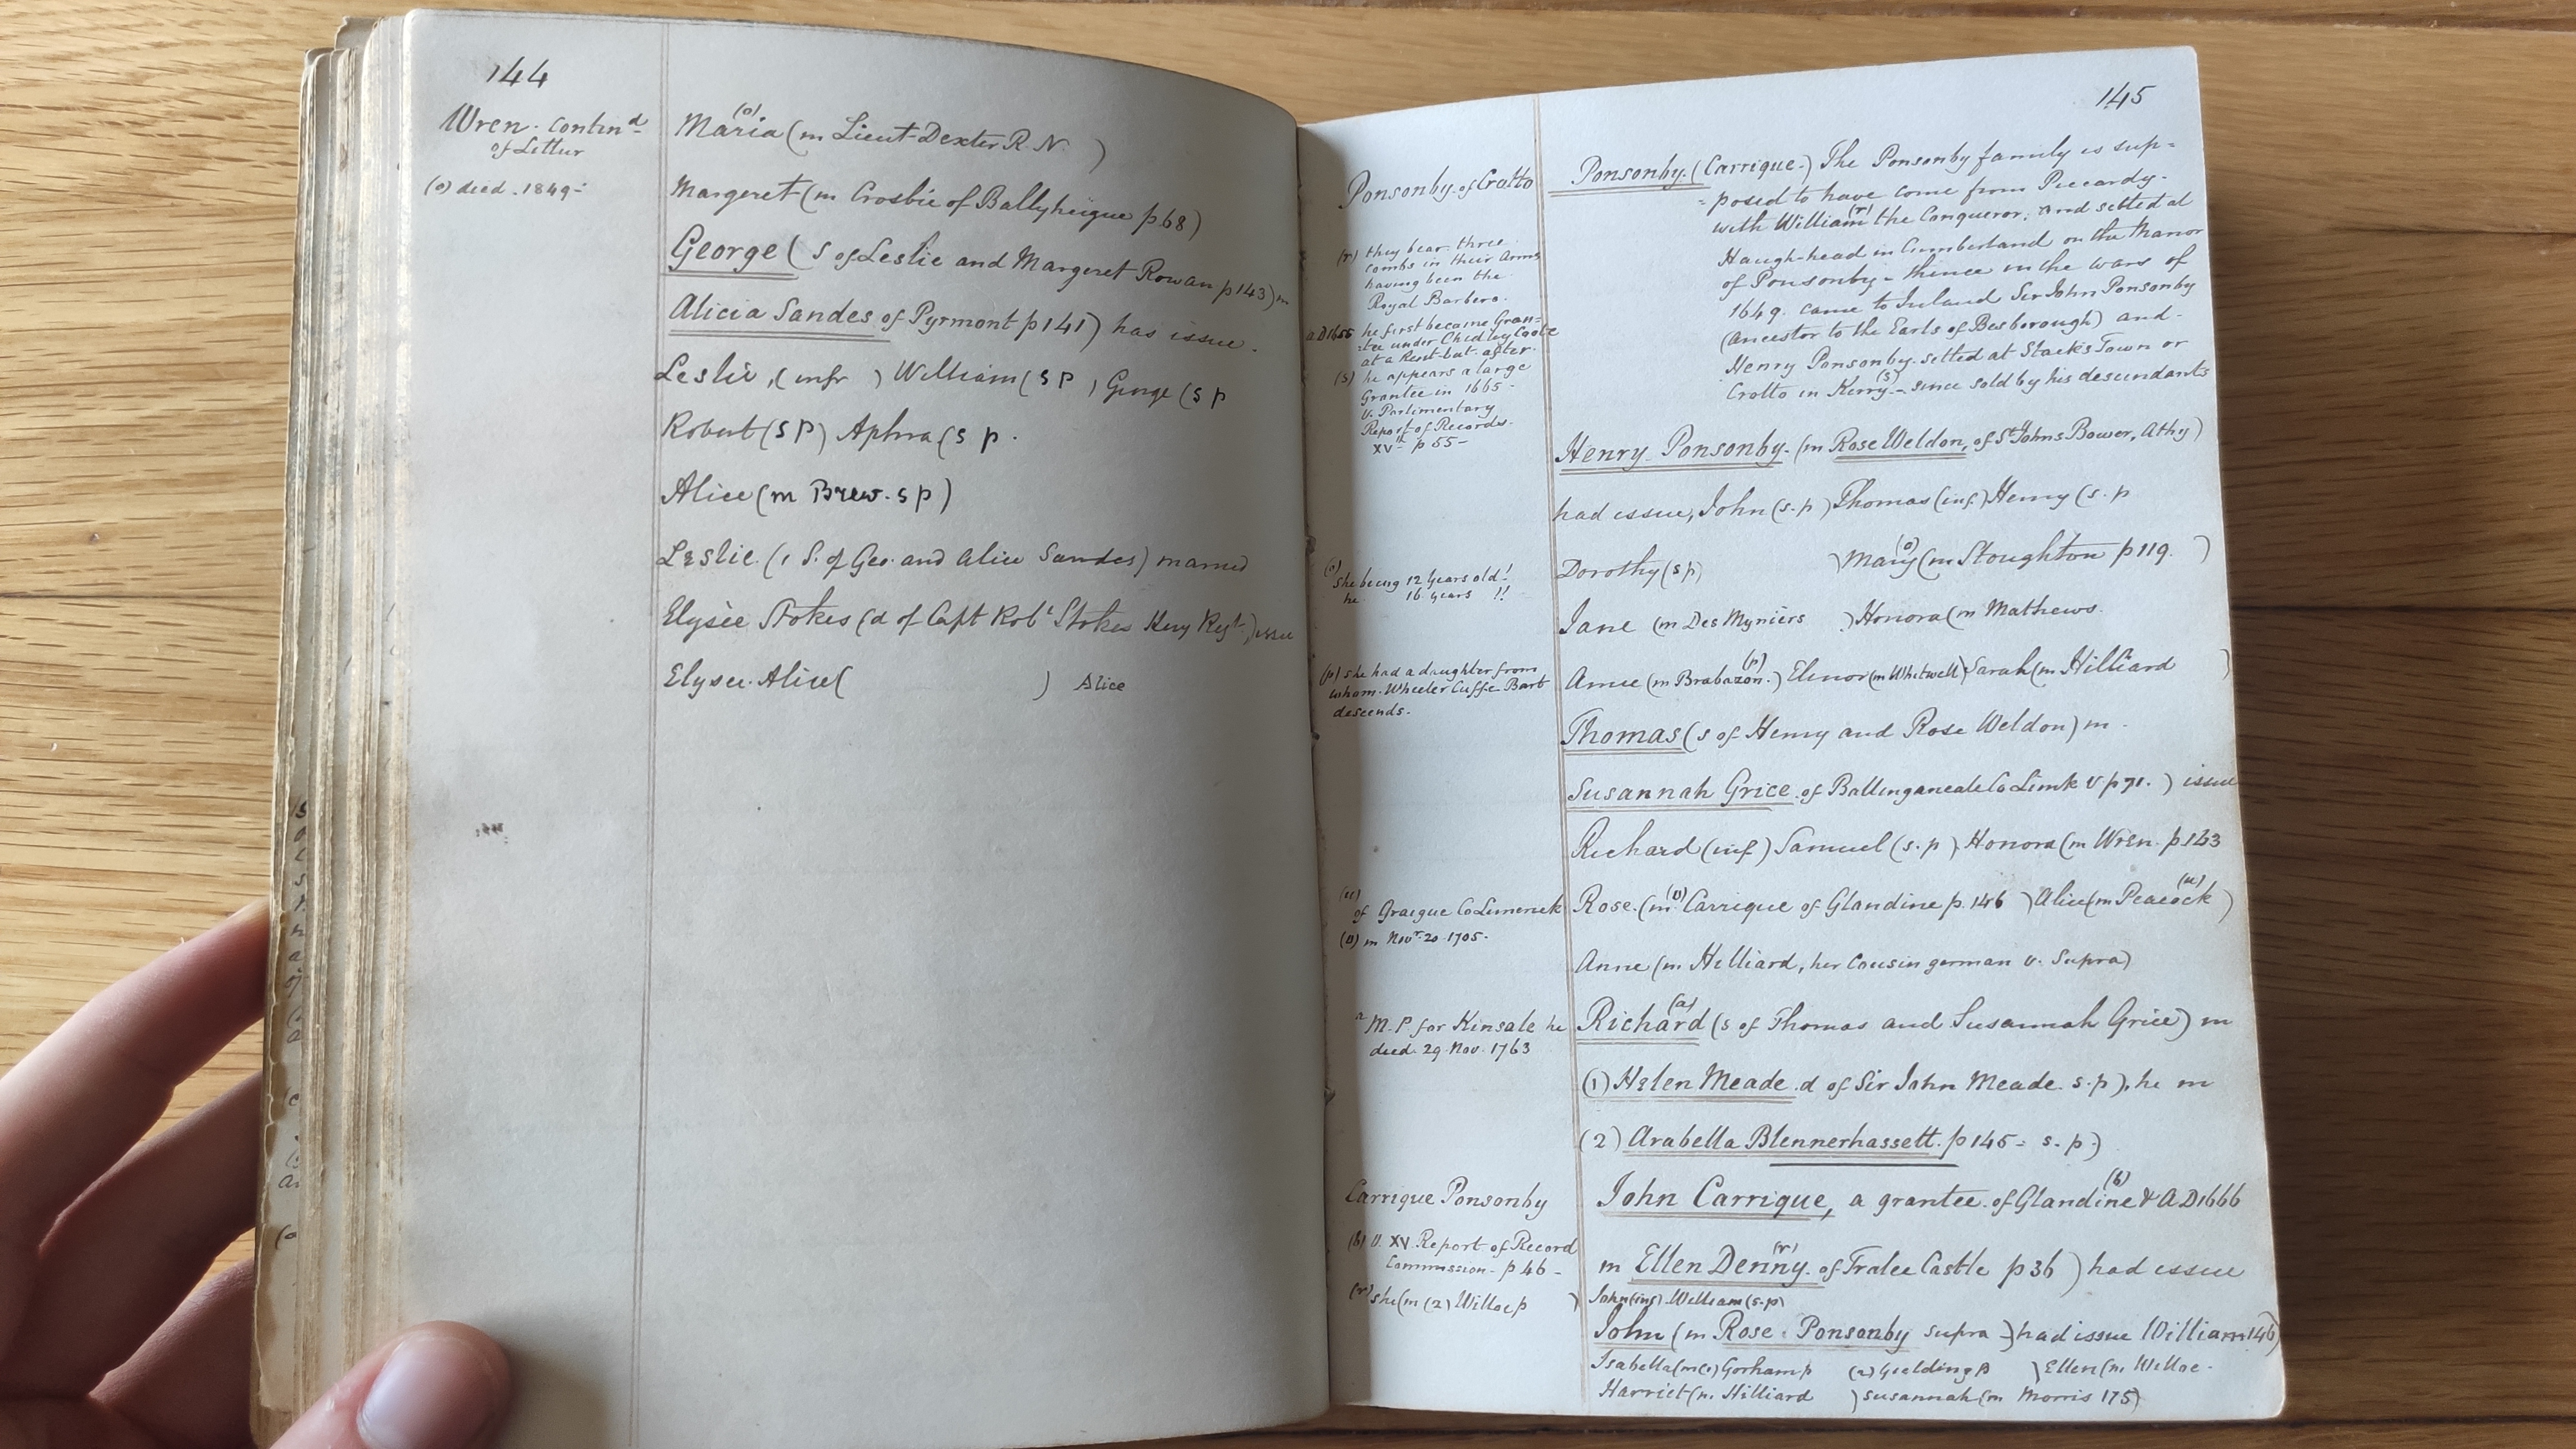 144
Wren. contind
of Littur
(o) died. 1849-
(o)
Maria (m Lieut Dexter R. N. )
Margeret (m Crosbie of Ballyheigue p 68)
George ( s of Leslie and Margeret Rowan p 143) m
Alicia Sandes of Pyrmont p 141) has issue.
Leslie, (infr ) William (s p ) George (s p
Robert (s p) Aphra (s p.
Alice (m Brew. s p)
Leslie. (1 S. of Geo. and Alice Sandes) married
Elysèe Stokes (d of Capt Robt Stokes Kerry Regt.) issue
Elysee. Alice( ) Alice
145
Ponsonby. of Crotto
(r) they bear three
combs in their Arms
having been the
Royal Barbers.
A.D 1655 he first become Gran=
=tee under Chidley Coote
at a Rent but after.
(s) he appears a large
Grantee in 1665-
v. Parlimentary
Report of Records.
XVth p 55-
(o)
she being 12 years old!
he 16 years !!
(p) she had a daughter from
whom. Wheeler Cuffe Bart
descends.
(u)
of Graigue Co Limerick
(v) m Novr. 20 1705.
a M. P for Kinsale he
died. 29. Nov. 1763
Carrique Ponsonby
(b) v. XV. Report of Record
Commission - p 46 -
(r) she (m (2) Willoe p )
Ponsonby. (Carrique.) The Ponsonby family is sup=
=posed to have come from Piccardy.
with William (r) the Conqueror, and settled at
Haugh-head in Cumberland on the Manor
of Ponsonby - thence in the wars of
1649. came to Ireland Sir John Ponsonby
(ancestor to the Earls of Besborough) and-
Henry Ponsonby. settled at Stack's Town or
Crotto in Kerry (s) - since sold by his descendants
Henry Ponsonby. (m Rose Weldon, of St Johns Bower, Athy)
had issue, John (s. p ) Thomas (inf.) Henry (s. p
Dorothy (s p) ) Mary (o) (m Stoughton p 119. )
Jane (m Des Myniers ) Honora (m Mathews.
Anne (m Brabazon. (p) ) Elinor (m Whitwell) Sarah (m Hilliard )
Thomas (s of Henry and Rose Weldon) m.
Susannah Grice. of Co Limk v p 71. ) issue
Richard (inf.) Samuel (s. p ) Honora (m Wren. p 143
Rose. (m (v) Carrique of Glandine p. 146 ) Alice (m Peacock (u) )
Anne (m. Hilliard, her cousin german v. Supra)
Richard (a) (s of Thomas and Susannah Grice) m
(1) Helen Meade. d of Sir John Meade. s. p), he m
(2) Arabella Blennerhassett. p 145 - s. p )
John Carrique, a grantee. of Glandine (b) & A D 1666
m Ellen Denny (r). of Tralee Castle p 36 ) had issue
John (inf) William (s. p)
John (m Rose. Ponsonby supra ) had issue William 146)
Isabella (m (1) Gorham p (2) Gielding p ) Ellen (m. Willoe.
Harriet (m. Hilliard ) Susannah (m Morris 175)